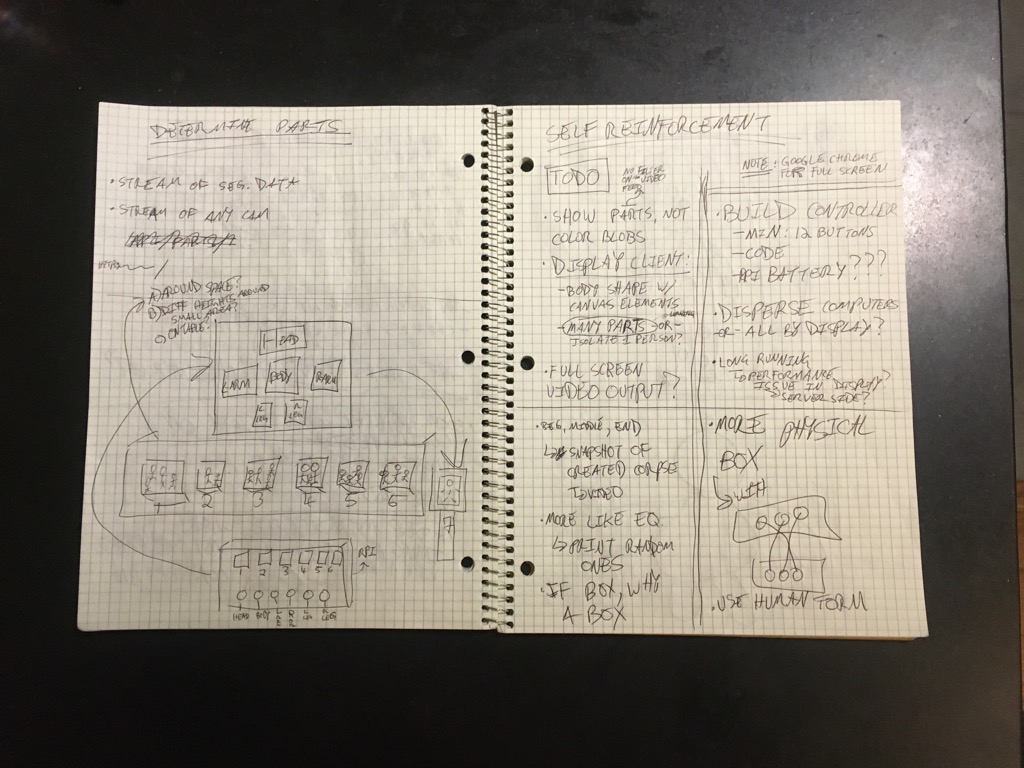 DETERMINE PARTS
• STREAM OF SEG. DATA
• STREAM OF ANY CAM
A) AROUND SPACE?
B) DIFF HEIGHTS AROUND
SMALL AREA?
C) ON TABLE?
HEAD
L ARM BODY R ARM
L LEG R LEG
1 2 3 4 5 6
7
RPI
1 2 3 4 5 6
HEAD BODY L LEG R LEG
SELF REINFORCEMENT
TODO
NO FILTER
ON VIDEO
FEED
• SHOW PARTS, NOT
COLOR BLOBS
• DISPLAY CLIENT:
- BODY SHAPE W/
CANVAS ELEMENTS
- MANY PARTS -OR-
ISOLATE 1 PERSON?
• FULL SCREEN
VIDEO OUTPUT?
NOTE: GOOGLE CHROME
FOR FULL SCREEN
• BUILD CONTROLLER
- MIN: 12 BUTTONS
- CODE
- RPI BATTERY???
• DISPERSE COMPUTERS
-OR- ALL BY DISPLAY?
• LONG RUNNING
PERFORMANCE
ISSUE IN DISPLAY?
SERVER SIDE?
• BEG, MIDDLE, END
↳ SNAPSHOT OF
CREATED CORPSE
VIDEO
• MORE LIKE EQ.
↳ PRINT RANDOM
ONES
• IF BOX, WHY
A BOX
• MORE PHYSICAL
BOX
WITH
• USE HUMAN FORM